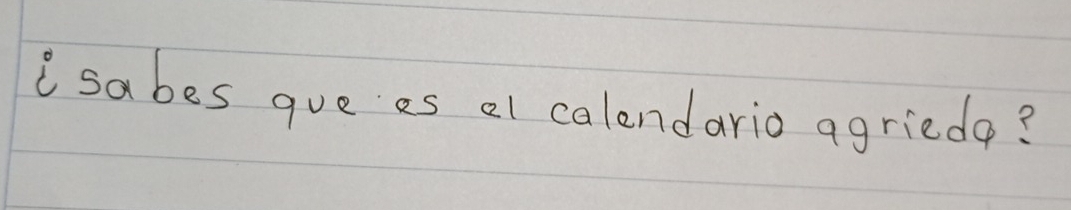 ¿sabes que es el calendario agrieda?